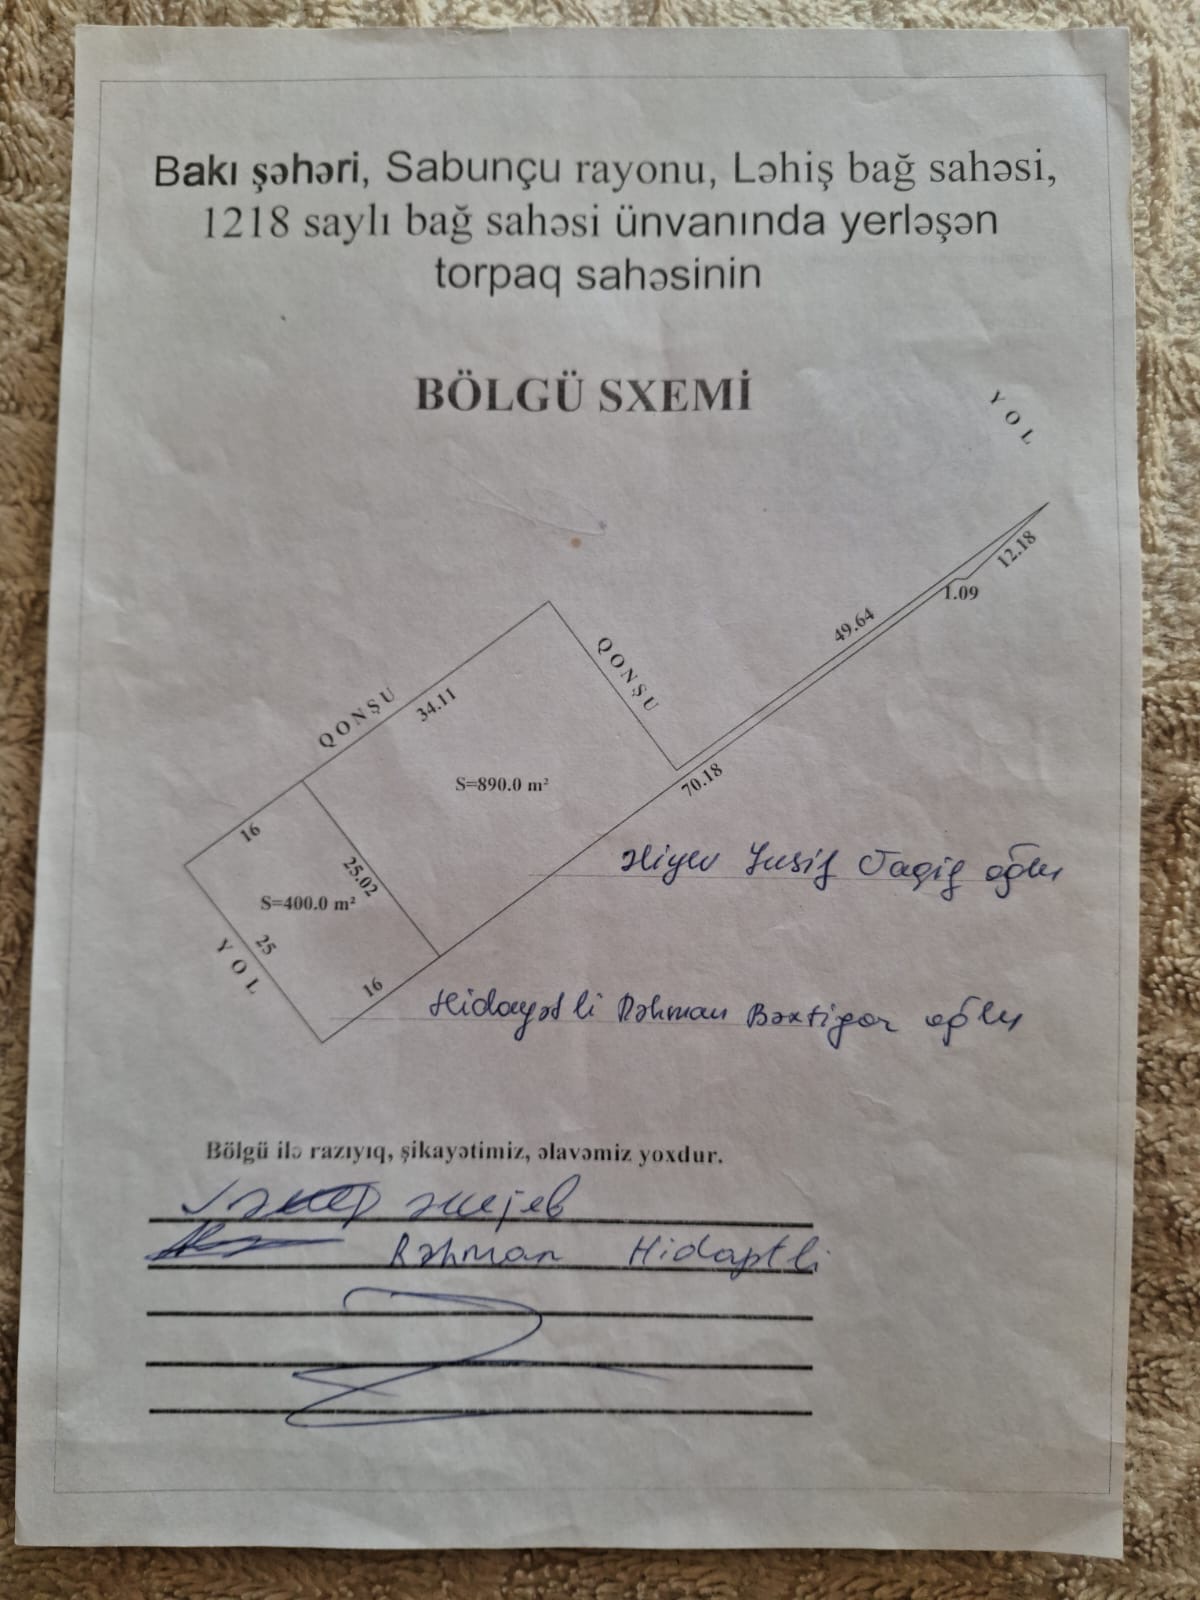 Bakı şəhəri, Sabunçu rayonu, Ləhiş bağ sahəsi,
1218 saylı bağ sahəsi ünvanında yerləşən
torpaq sahəsinin
BÖLGÜ SXEMİ
YOL
12.18
1.09
49.64
QONŞU
QONŞU
34.11
70.18
S=890.0 m²
16
25.02
S=400.0 m²
25
YOL
16
Əliyev Yusif Taqif oğlu
Hidayətli Rəhman Bəxtiyar oğlu
Bölgü ilə razıyıq, şikayətimiz, əlavəmiz yoxdur.
Rəhman Hidayətli